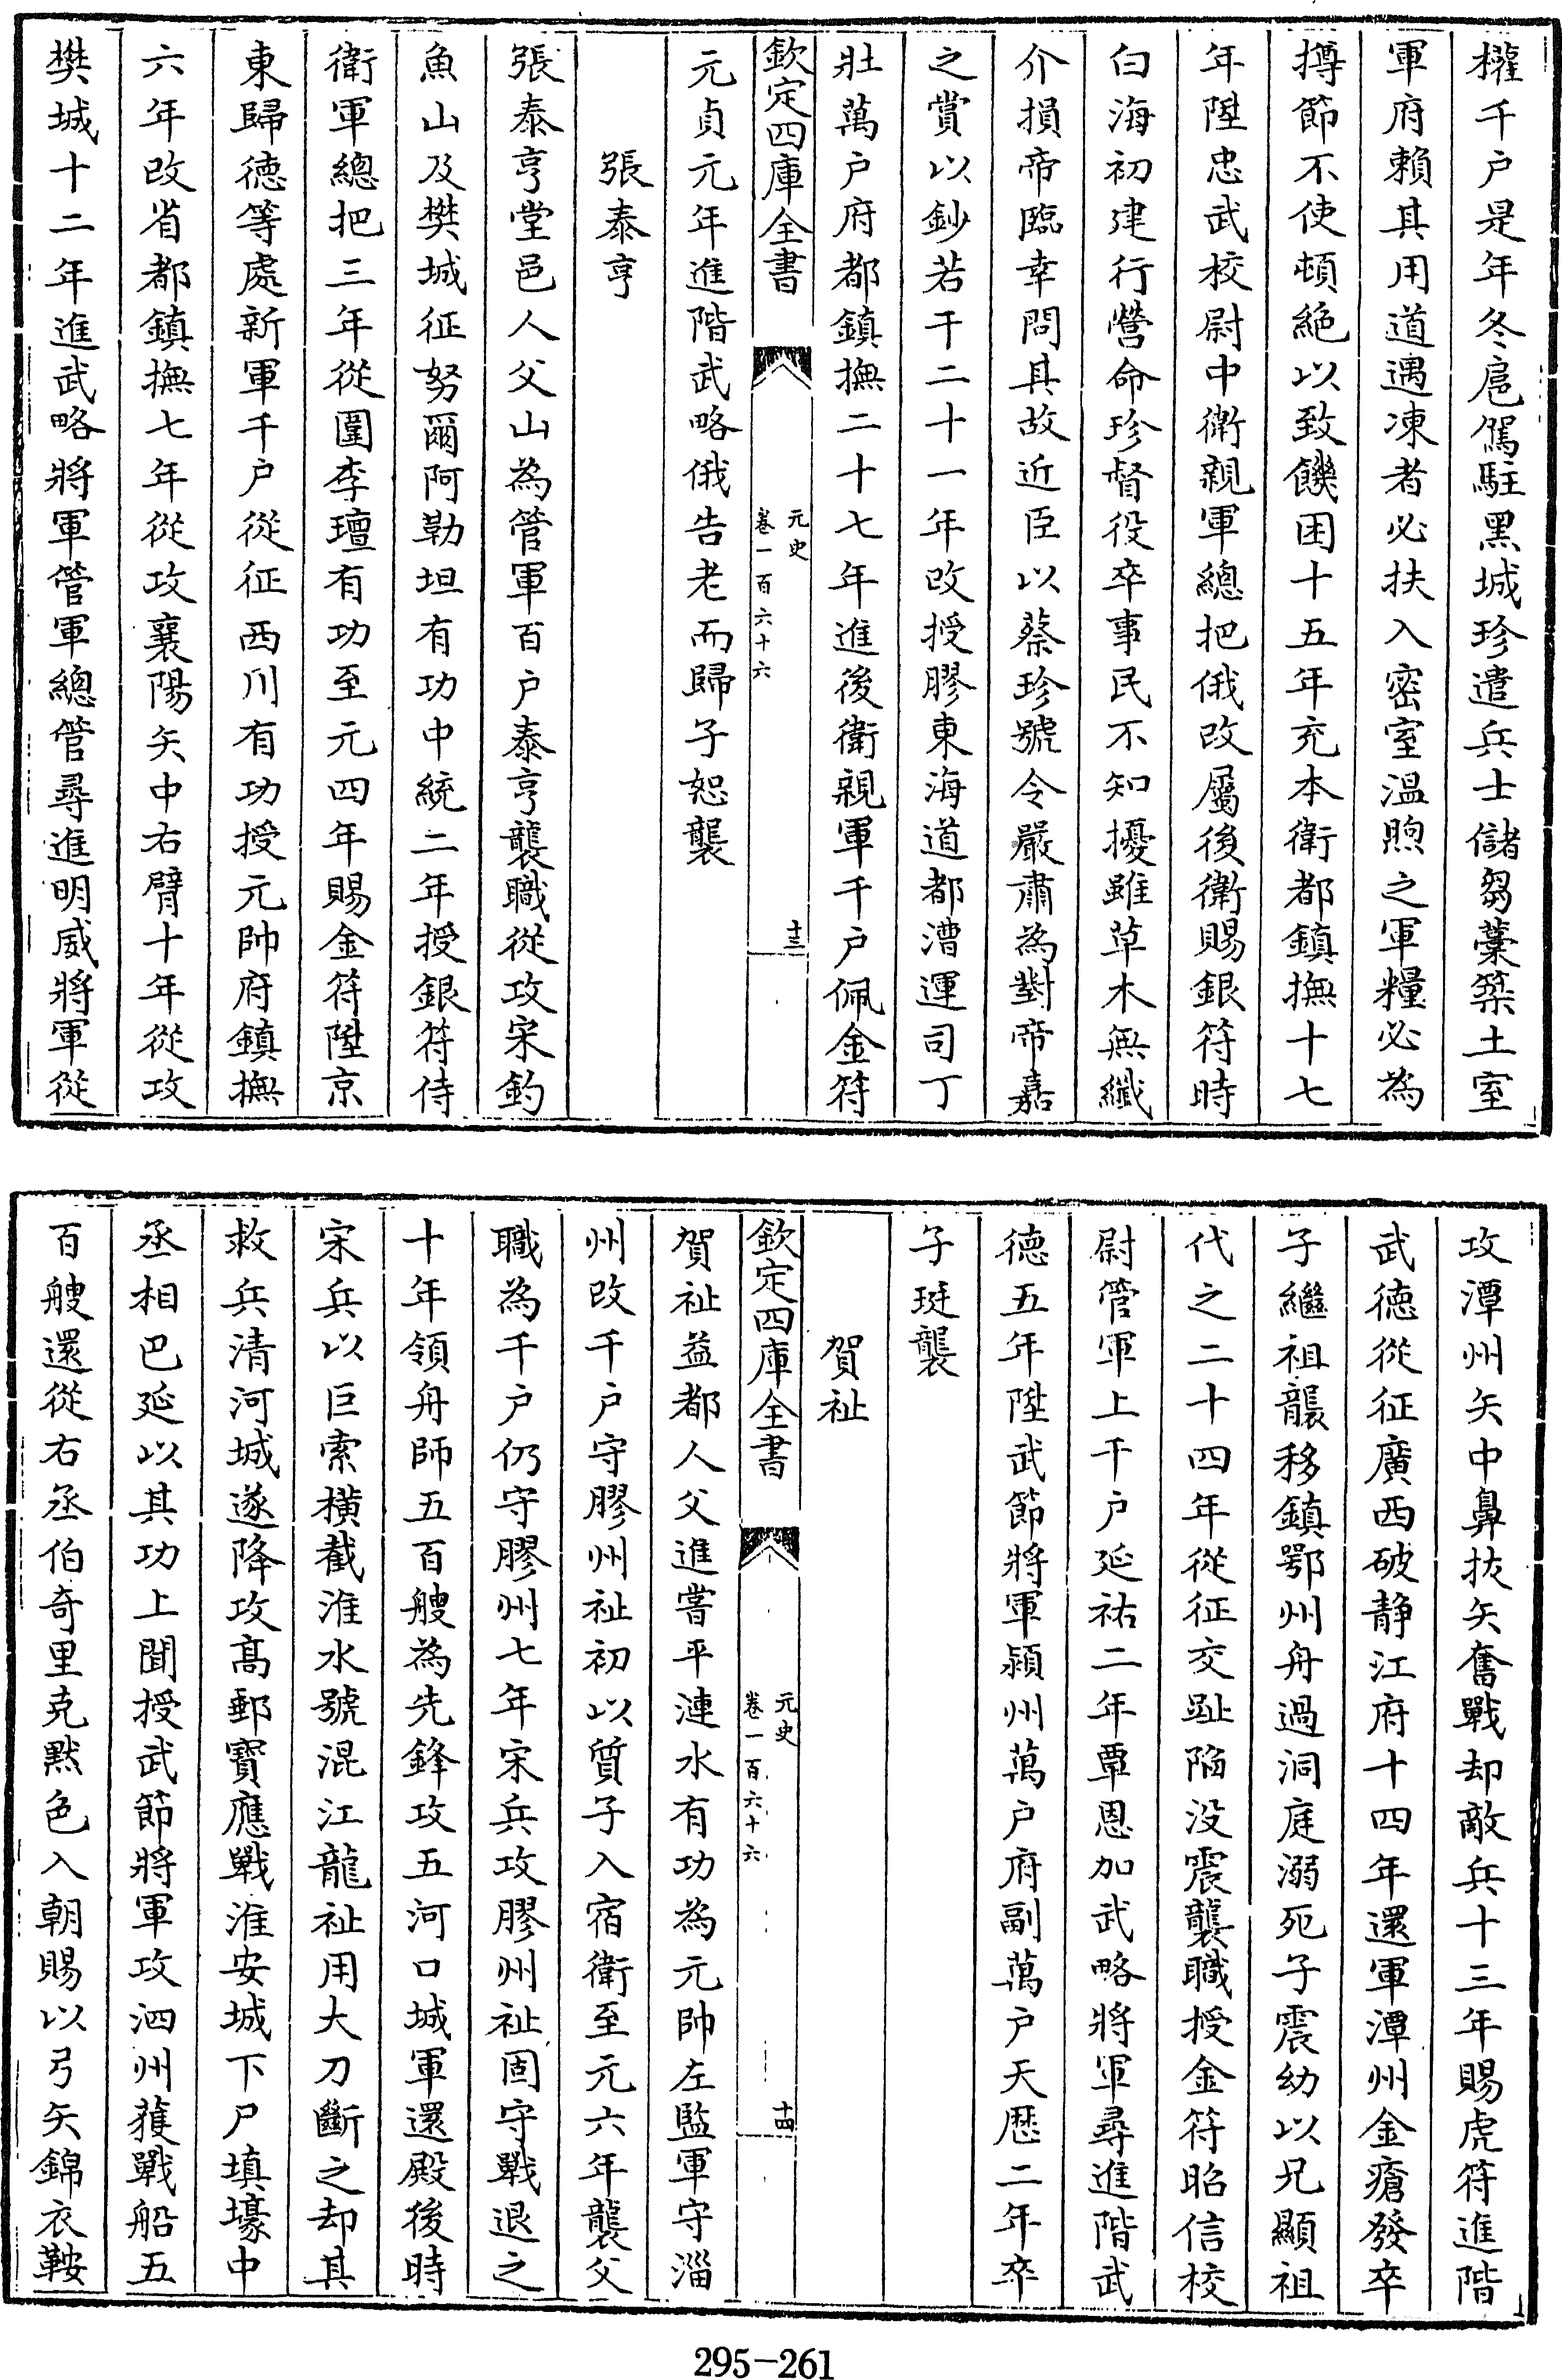 權千户是年冬扈駕駐黑城珍遣兵士儲芻藁築土室
軍府賴其用道遇凍者必扶入密室温煦之軍糧必為
撙節不使頓絶以致饑困十五年充本衛都鎮撫十七
年陞忠武校尉中衛親軍總把俄改屬後衛賜銀符時
白海初建行營命珍督役卒事民不知擾雖草木無纖
介損帝臨幸問其故近臣以蔡珍號令嚴肅為對帝嘉
之賞以鈔若干二十一年改授膠東海道都漕運司丁
壯萬户府都鎮撫二十七年進後衛親軍千户佩金符
欽定四庫全書
元史
卷一百六十六
十三
元貞元年進階武略俄告老而歸子恕襲
張泰亨
張泰亨堂邑人父山為管軍百户泰亨襲職從攻宋釣
魚山及樊城征努爾阿勒坦有功中統二年授銀符侍
衛軍總把三年從圍李璮有功至元四年賜金符陞京
東歸徳等處新軍千户從征西川有功授元帥府鎮撫
六年改省都鎮撫七年從攻襄陽矢中右臂十年從攻
樊城十二年進武略將軍管軍總管尋進明威將軍從
攻潭州矢中鼻拔矢奮戰却敵兵十三年賜虎符進階
武徳從征廣西破静江府十四年還軍潭州金瘡發卒
子繼祖襲移鎮鄂州舟過洞庭溺死子震幼以兄顯祖
代之二十四年從征交趾陥没震襲職授金符昭信校
尉管軍上千户延祐二年覃恩加武略將軍尋進階武
徳五年陞武節將軍潁州萬户府副萬户天厯二年卒
子珽襲
賀祉
欽定四庫全書
元史
卷一百六十六
十四
賀祉益都人父進嘗平漣水有功為元帥左監軍守淄
州改千户守膠州祉初以質子入宿衛至元六年襲父
職為千户仍守膠州七年宋兵攻膠州祉固守戰退之
十年領舟師五百艘為先鋒攻五河口城軍還殿後時
宋兵以巨索横截淮水號混江龍祉用大刀斷之却其
救兵清河城遂降攻髙郵寳應戰淮安城下尸填壕中
丞相巴延以其功上聞授武節將軍攻泗州獲戰船五
百艘還從右丞伯奇里克黙色入朝賜以弓矢錦衣鞍
295-261